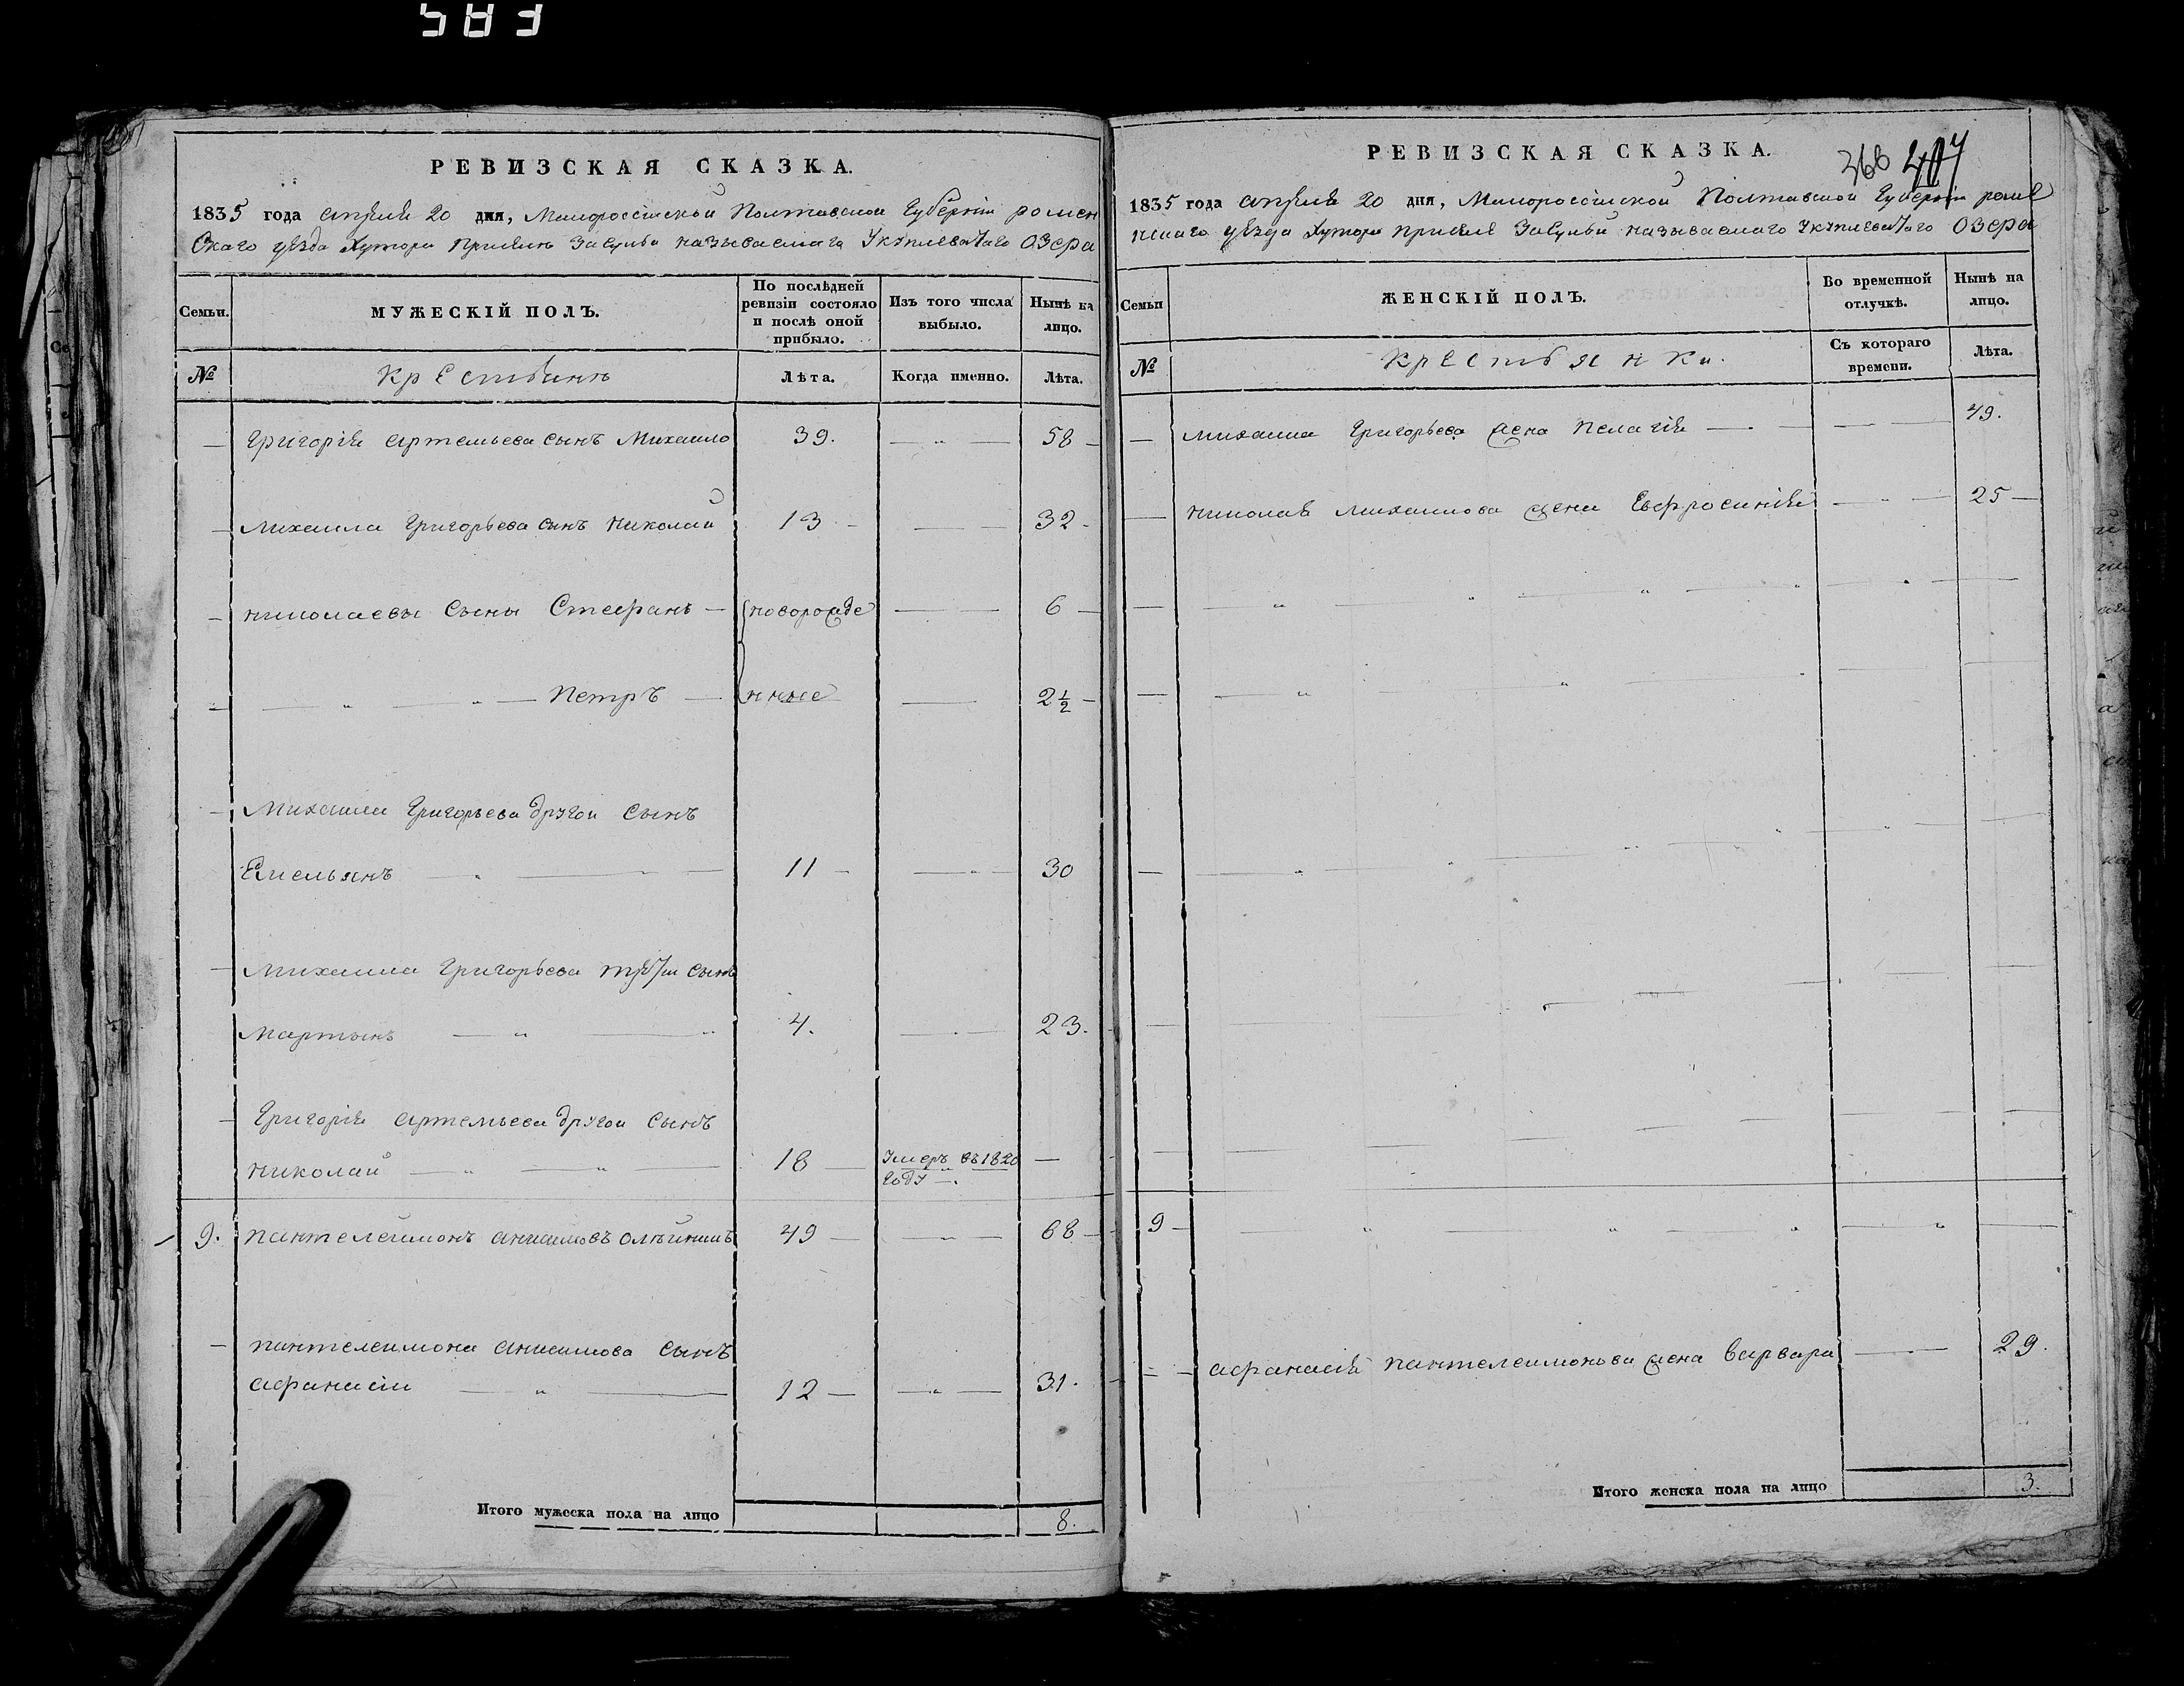 583
РЕВИЗСКАЯ СКАЗКА.
1835 года апреля 20 дня, Малороссійской Полтавской Губерніи ромен
Скаго уѣзда Хутора называемаго Озера
Семьи.
МУЖЕСКІЙ ПОЛЪ.
По послѣдней ревизіи состояло и послѣ оной прибыло.
Изъ того числа выбыло.
Нынѣ на лицо.
№
Крестьянъ
Лѣта.
Когда именно.
Лѣта.
Григорія Артемьева сынъ Михайло 39. 58
Михаила Григорьева сынъ Николай 13 32
Николаевы Сыны Стефанъ новорожде 6
Петръ нные 2 1/2
Михаила Григорьева другой сынъ
Емельянъ 11 30
Михаила Григорьева третій сынъ
Мартынъ 4. 23.
Григорія Артемьева другой сынъ
Николай 18 Умеръ въ 1820
году
9. Пантелеймонъ Анисимовъ 49 68
Пантелеимона Анисимова сынъ
Афанасій 12 31.
Итого мужеска пола на лицо 8.
РЕВИЗСКАЯ СКАЗКА.
366 407
1835 года апреля 20 дня, Малороссійской Полтавской Губерніи роме
нскаго уѣзда Хутора называемаго Озера
Семьи
ЖЕНСКІЙ ПОЛЪ.
Во временной отлучкѣ.
Нынѣ на лицо.
№
Крестьянки.
Съ котораго времени.
Лѣта.
Михаила Григорьева жена Пелагія 49.
Николая Михайлова жена Евфросинія 25
9
Афанасія Пантелеимонова жена Варвара 29.
Итого женска пола на лицо 3.